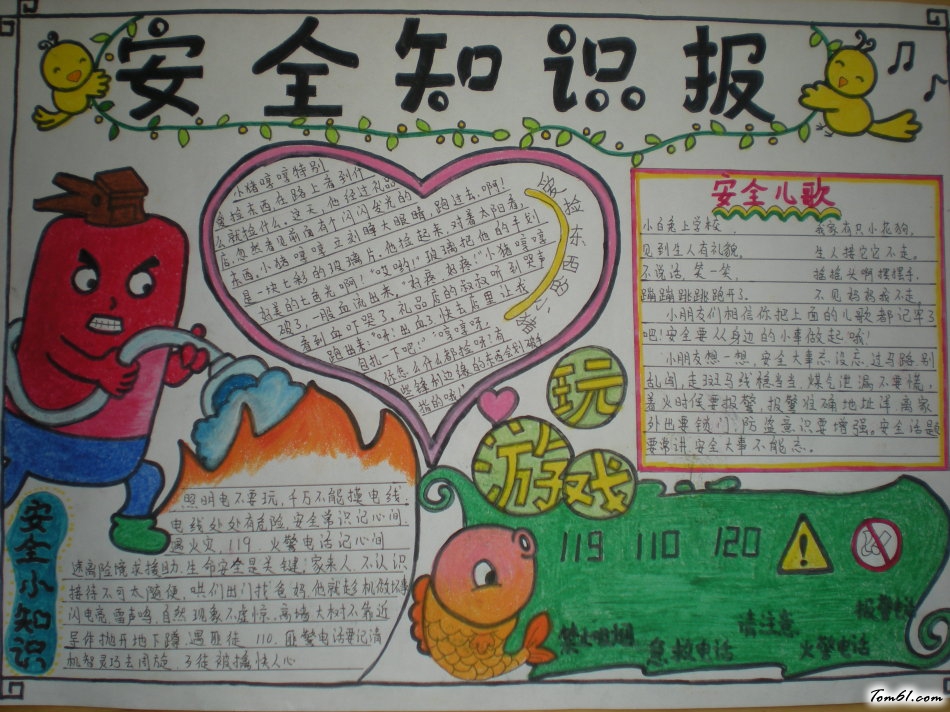 安全知识报
小猪哼哼特别
爱捡东西在路上看到什
么就捡什么。这天,他经过礼品
店,忽然看见前面有个闪闪发光的
东西,小猪哼哼立刻睁大眼睛,跑过去,啊!
是一块七彩的玻璃片。他捡起来,对着太阳看,
好美的七色光啊!“哎哟!”玻璃把他的手划
破了,一股血流出来。“好疼,好疼!”小猪哼哼
看到血吓哭了。礼品店的叔叔听到哭声
跑出来:“呀!出血了!快去店里让我
包扎一下吧!”“哼哼呀,
你怎么什么都捡呀?有
些锋利边缘的东西会划破手
指的哦!”
爱捡东西的小猪
安全儿歌
小白兔上学校, 我家有只小花狗,
见到生人有礼貌, 生人接它它不走。
不说话,笑一笑, 摇摇头啊摆摆手,
蹦蹦跳跳跑开了. 不见妈妈我不走。
小朋友们相信你把上面的儿歌都记牢了
吧!安全要从身边的小事做起哦!
小朋友想一想,安全大事忘没忘,过马路,别
乱闯,走斑马线稳当当,煤气泄漏不要慌,
着火时候要报警,报警准确地址详,离家
外出要锁门,防盗意识要增强。安全话题
要常讲,安全大事不能忘。
玩
游戏
119 110 120
禁止吸烟 急救电话 请注意 火警电话 报警电话
安全小知识
照明电不要玩,千万不能摸电线,
电线处处有危险,安全常识记心间,
遇火灾,119 火警电话记心间
逃离险境求援助,生命安全是关键;家来人,不认识
接待不可太随便,哄们出门找爸妈,他就趁机做坏事
闪电亮,雷声鸣,自然现象不虚惊,离墙大树不靠近
早伴抛开地下蹲,遇匪徒,110,匪警电话要记清
机智灵巧去周旋,歹徒被擒快人心
Tom61.com